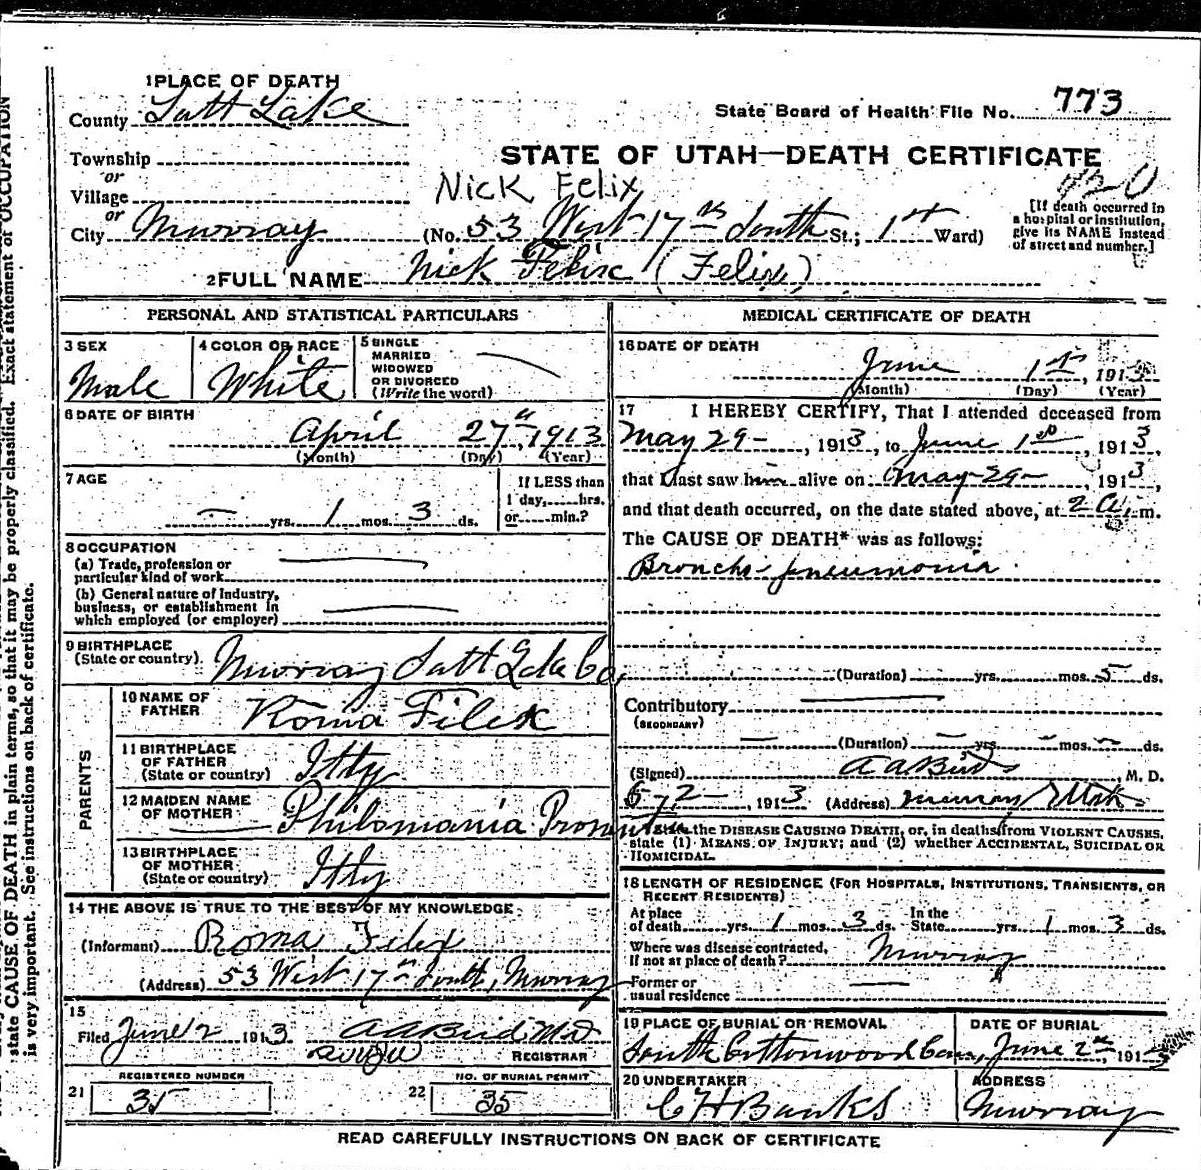 1 PLACE OF DEATH
County Salt Lake
State Board of Health File No. 773
Township
STATE OF UTAH—DEATH CERTIFICATE
or
Village
Nick Felix
820
or
City Murray (No. 53 West 17th South St.; 1st Ward)
[If death occurred in
a hospital or institution,
give its NAME instead
of street and number.]
2 FULL NAME Nick Felix (Felix)
PERSONAL AND STATISTICAL PARTICULARS
3 SEX
Male
4 COLOR OR RACE
White
5 SINGLE
MARRIED
WIDOWED
OR DIVORCED
(Write the word)
6 DATE OF BIRTH
April 27th, 1913
(Month) (Day) (Year)
7 AGE
— yrs. 1 mos. 3 ds.
If LESS than
1 day,......hrs.
or......min.?
8 OCCUPATION
(a) Trade, profession or
particular kind of work
(b) General nature of Industry,
business, or establishment in
which employed (or employer)
9 BIRTHPLACE
(State or country) Murray Salt Lake Co.
PARENTS
10 NAME OF
FATHER Roma Filex
11 BIRTHPLACE
OF FATHER
(State or country) Itly
12 MAIDEN NAME
OF MOTHER Philomania
13 BIRTHPLACE
OF MOTHER
(State or country) Itly
14 THE ABOVE IS TRUE TO THE BEST OF MY KNOWLEDGE
(Informant) Roma Felix
(Address) 53 West 17th South, Murray
15
Filed June 2 1913 A A Bird MD
REGISTRAR
REGISTERED NUMBER
21 35
NO. OF BURIAL PERMIT
22 35
MEDICAL CERTIFICATE OF DEATH
16 DATE OF DEATH
June 1st, 1913
(Month) (Day) (Year)
17 I HEREBY CERTIFY, That I attended deceased from
May 29—, 1913, to June 1st, 1913,
that I last saw him alive on May 29—, 1913,
and that death occurred, on the date stated above, at 2 A. m.
The CAUSE OF DEATH* was as follows:
Broncho pneumonia
(Duration) yrs. mos. 5 ds.
Contributory
(SECONDARY)
— (Duration) — yrs. — mos. — ds.
(Signed) A A Bird, M. D.
6/2—, 1913 (Address) Murray Utah
the DISEASE CAUSING DEATH, or, in deaths from VIOLENT CAUSES,
state (1) MEANS OF INJURY; and (2) whether ACCIDENTAL, SUICIDAL OR
HOMICIDAL.
18 LENGTH OF RESIDENCE (FOR HOSPITALS, INSTITUTIONS, TRANSIENTS, OR
RECENT RESIDENTS)
At place
of death yrs. 1 mos. 3 ds. In the
State yrs. 1 mos. 3 ds.
Where was disease contracted,
If not at place of death? Murray
Former or
usual residence
19 PLACE OF BURIAL OR REMOVAL
South Cottonwood Cem
DATE OF BURIAL
June 2nd, 1913
20 UNDERTAKER
C H Banks
ADDRESS
Murray
READ CAREFULLY INSTRUCTIONS ON BACK OF CERTIFICATE
state CAUSE OF DEATH in plain terms, so that it may be properly classified. Exact statement of OCCUPATION
is very important. See instructions on back of certificate.